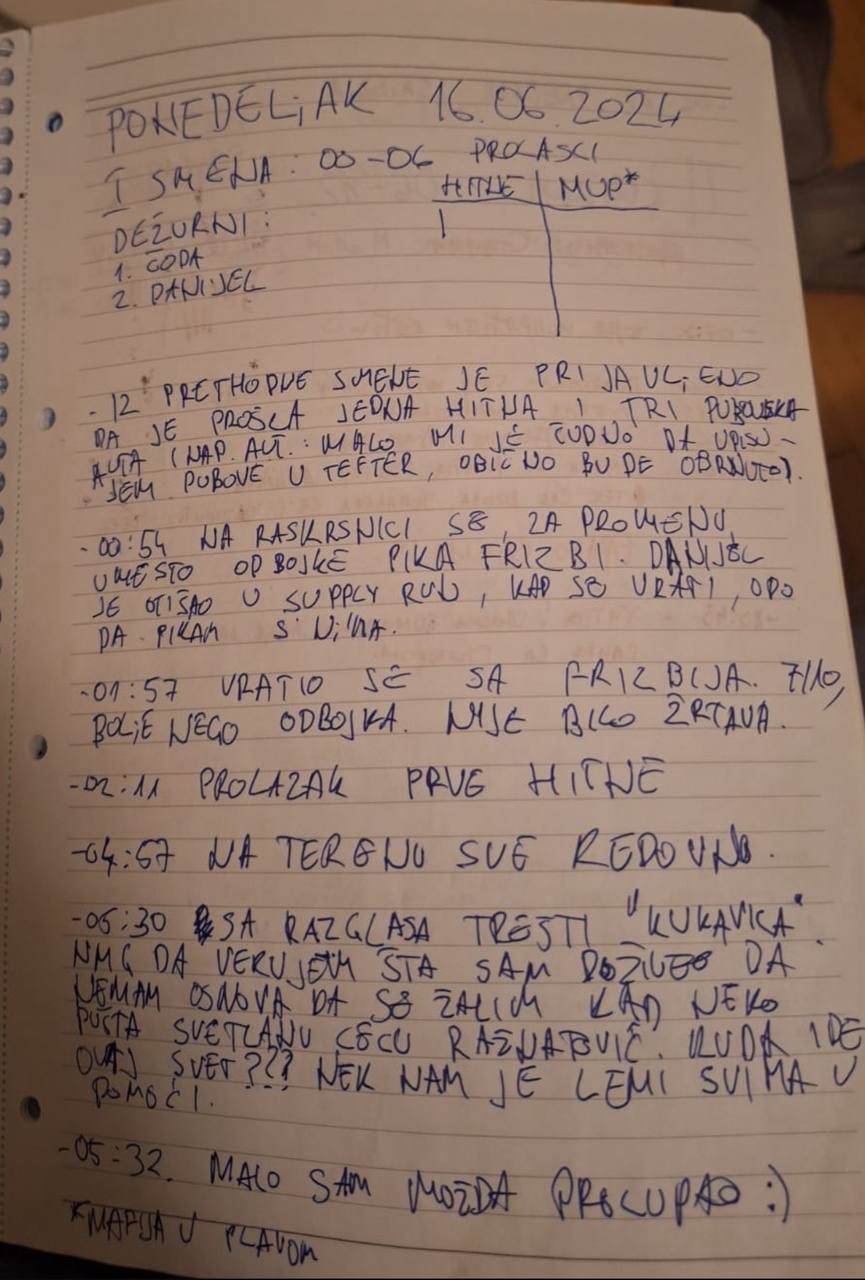 PONEDELJAK 16.06.2024
I SMENA: 00-06 PROLASCI
HITNE | MUP*
DEŽURNI: 1
1. ĆODA
2. DANIJEL
- IZ PRETHODNE SMENE JE PRIJAVLJENO
DA JE PROŠLA JEDNA HITNA I TRI PUBOVSKA
AUTA (NAP. AUT.: MALO MI JE ČUDNO DA UPISU-
JEM PUBOVE U TEFTER, OBIČNO BUDE OBRNUTO).
-00:54 NA RASKRSNICI SE, ZA PROMENU,
UMESTO ODBOJKE PIKA FRIZBI. DANIJEL
JE OTIŠAO U SUPPLY RUN, KAD SE VRATI, ODO
DA PIKAM S NJIMA.
-01:57 VRATIO SE SA FRIZBIJA. 7/10,
BOLJE NEGO ODBOJKA. NIJE BILO ŽRTAVA.
-02:11 PROLAZAK PRVE HITNE
-04:57 NA TERENU SVE REDOVNO.
-05:30 SA RAZGLASA TREŠTI "KUKAVICA".
NMG DA VERUJEM ŠTA SAM DOŽIVEO DA
NEMAM OSNOVA DA SE ŽALIM KAD NEKO
PUŠTA SVETLANU CECU RAŽNATOVIĆ. KUDA IDE
OVAJ SVET??? NEK NAM JE LEMI SVIMA U
POMOĆI.
-05:32. MALO SAM MOŽDA PROLUPAO :)
*MAFIJA U PLAVOM